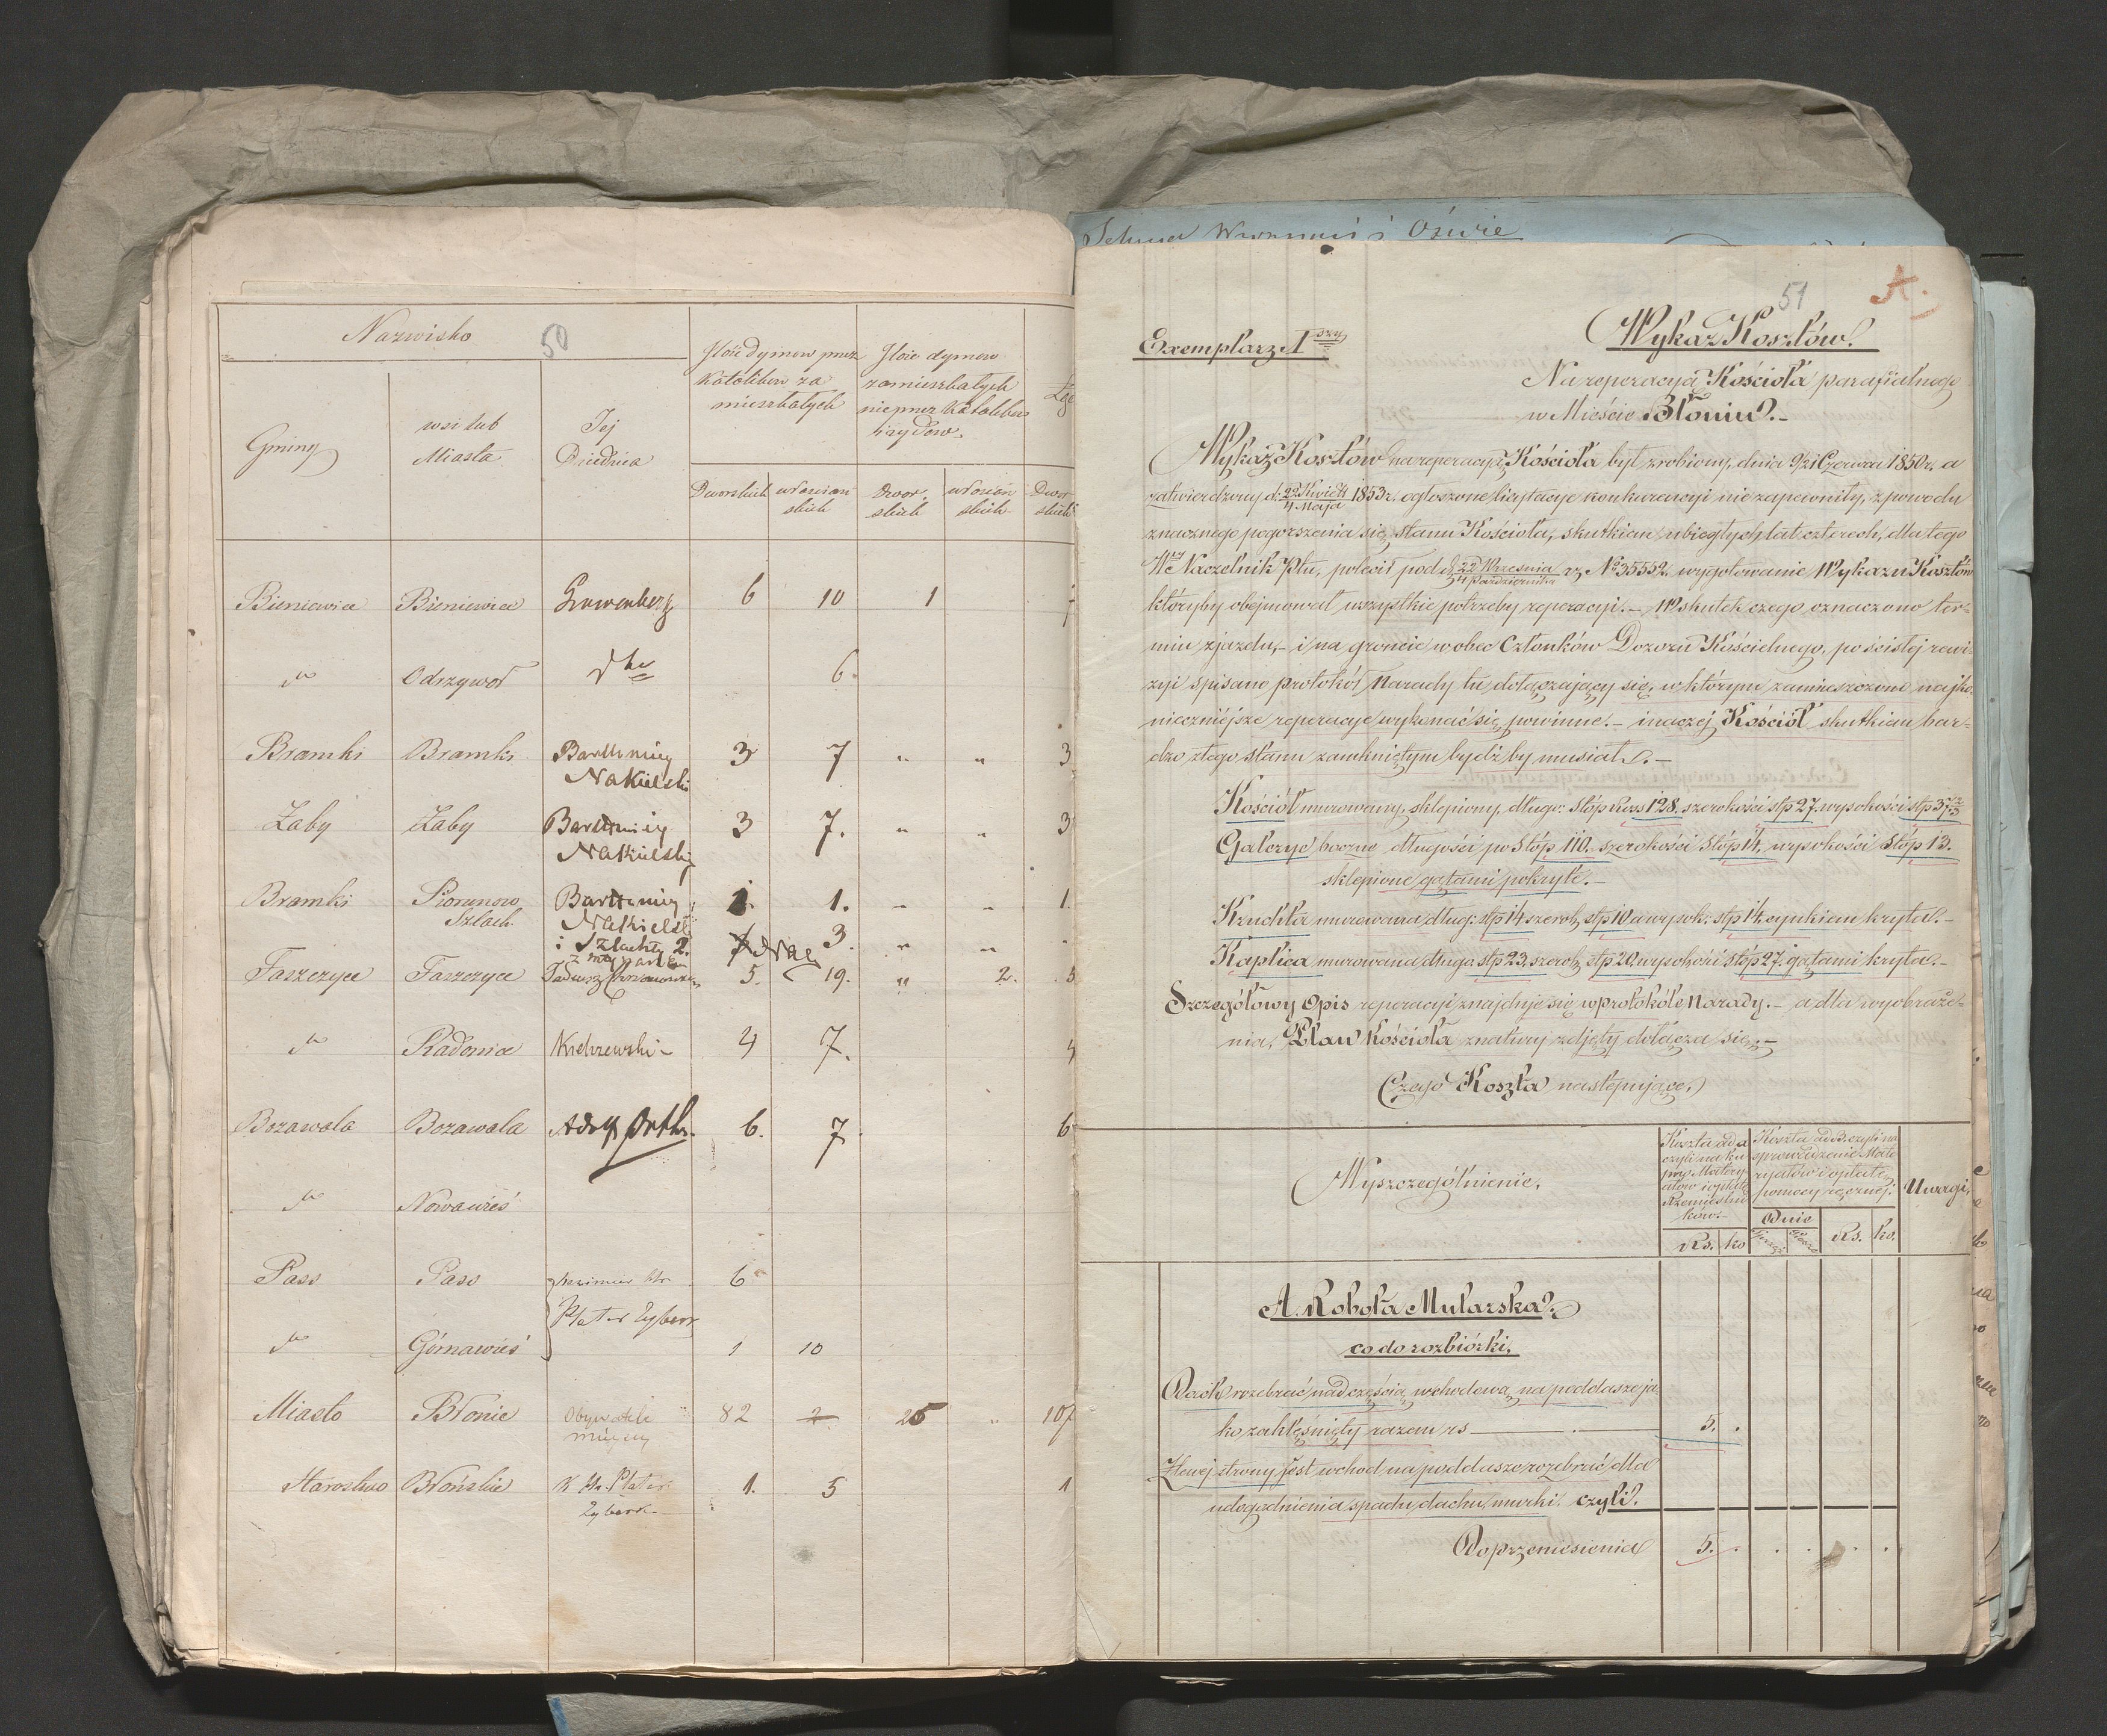 Nazwisko
50
Gminy
wsi lub
Miasta
Jej
Dziedzica
Ilość dymow przez
Katolikow za
mieszkałych
Ilość dymow
zamieszkałych
nieprzez Katolikow
i żydow.
Dworskich
włościań
skich
Dwor
skich
włościań
skich
Dwor
skich
Bieniewice Bieniewice 6 10 1
" Odrzywoł dto 6.
Bramki Bramki Bartłmiej 3 7 " " 3
Nakielski
Żaby Żaby Bartłmiej 3 7. " " 3
Nakielski
Bramki Piorunow Bartłmiej 1. 1. " " 1.
Szlach. Nakielski
i Szlachty 2. 3. " "
Faszczyce Faszczyce Tadeusz 5. 19. " 2. 5
" Radonice 4 7. 4
Bozawola Bozawola Adolf Orth. 6. 7. 6
" Nowawieś
Pass Pass Kazimierz Hr 6
Plater Zyberk
" Górnawieś 1 10
Miasto Błonie Obywatele 82 2 25 " 107
miejscy
Starostwo Błońskie K Hr. Plater 1. 5 1
Zyberk
51
A.
Exemplarz Iszy
Wykaz Kosztów.
Na reperacyą Kościoła parafialnego
w Mieście Błoniu.-
Wykaz Kosztów na reperacyą Kościoła był zrobiony, dnia 9/21 Czerwca 1850 r. a
zatwierdzony d. 22 Kwiet/4 Maja 1853 r. ogłoszone licytacye konkurencyi nie zapewniły, z powodu
znacznego pogorszenia się stanu Kościoła, skutkiem ubiegłych lat czterech, dla tego
Wny Naczelnik Ptu, polecił pod d. 22 Września/4 Października r.z. No 35552. wygotowanie Wykazu Kosztów
któryby obejmował wszystkie potrzeby reperacyi.- W skutek czego oznaczono ter=
min zjazdu,- i na gruncie w obec Członków Dozoru Kościelnego, po ścisłej rewi
zyi spisano protokół Narady tu dołączający się, w którym zamieszczone najko
nieczniejsze reperacye wykonać się powinne.- inaczej Kościół skutkiem bar-
dzo złego stanu zamkniętym bydź by musiał.-
Kościół murowany, sklepiony, długo: stóp Russ 128. szerokości stp 27. wysokości stp 37
Galerye boczne długości po stóp 110. szerokości stóp 14, wysokości stóp 13.
sklepione gątami pokryte.-
Kruchta murowana dług: stp 14 szerok. stp 10 a wysok: stp 14. cynkiem kryta.-
Kaplica murowana długa stp 23. szerok stp 20. wysokości stóp 27. gątami kryta.-
Szczegółowy Opis reperacyi znajduje się w protokóle Narady.- a dla wyobraże-
nia, Plan Kościoła z natury zdjęty dołącza się.-
Czego Koszta następujące.
Wyszczególnienie.
Koszta ad a
czyli na ku
pno Matery
ałów i opłatę
Rzemieślni
ków.-
Koszta ad B. czyli na
sprowadzenie Mate
ryałów i opłatę
pomocy ręcznej.
Uwagi.
Dnie
Rs. ko Rs. ko.
A. Robota Mularska.
co do rozbiórki.
Dach rozebrać nad częścią wchodową na poddasze ja
ko zaklęśnięty razem rs — . — 5. .
Z lewej strony jest wchod na poddasze rozebrać dla
udogodnienia spadu dachu, murki. czyli.
Do przeniesienia 5. . . . . .